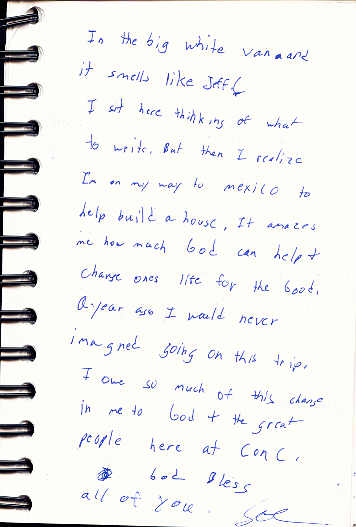 In the big white van and
it smells like Jeff
I sit here thinking of what
to write. But then I realize
I'm on my way to mexico to
help build a house. It amazes
me how much God can help +
change ones life for the Good.
A-year ago I would never
imagned going on this trip.
I owe so much of this change
in me to God + the great
people here at ConC.
God Bless
all of you.